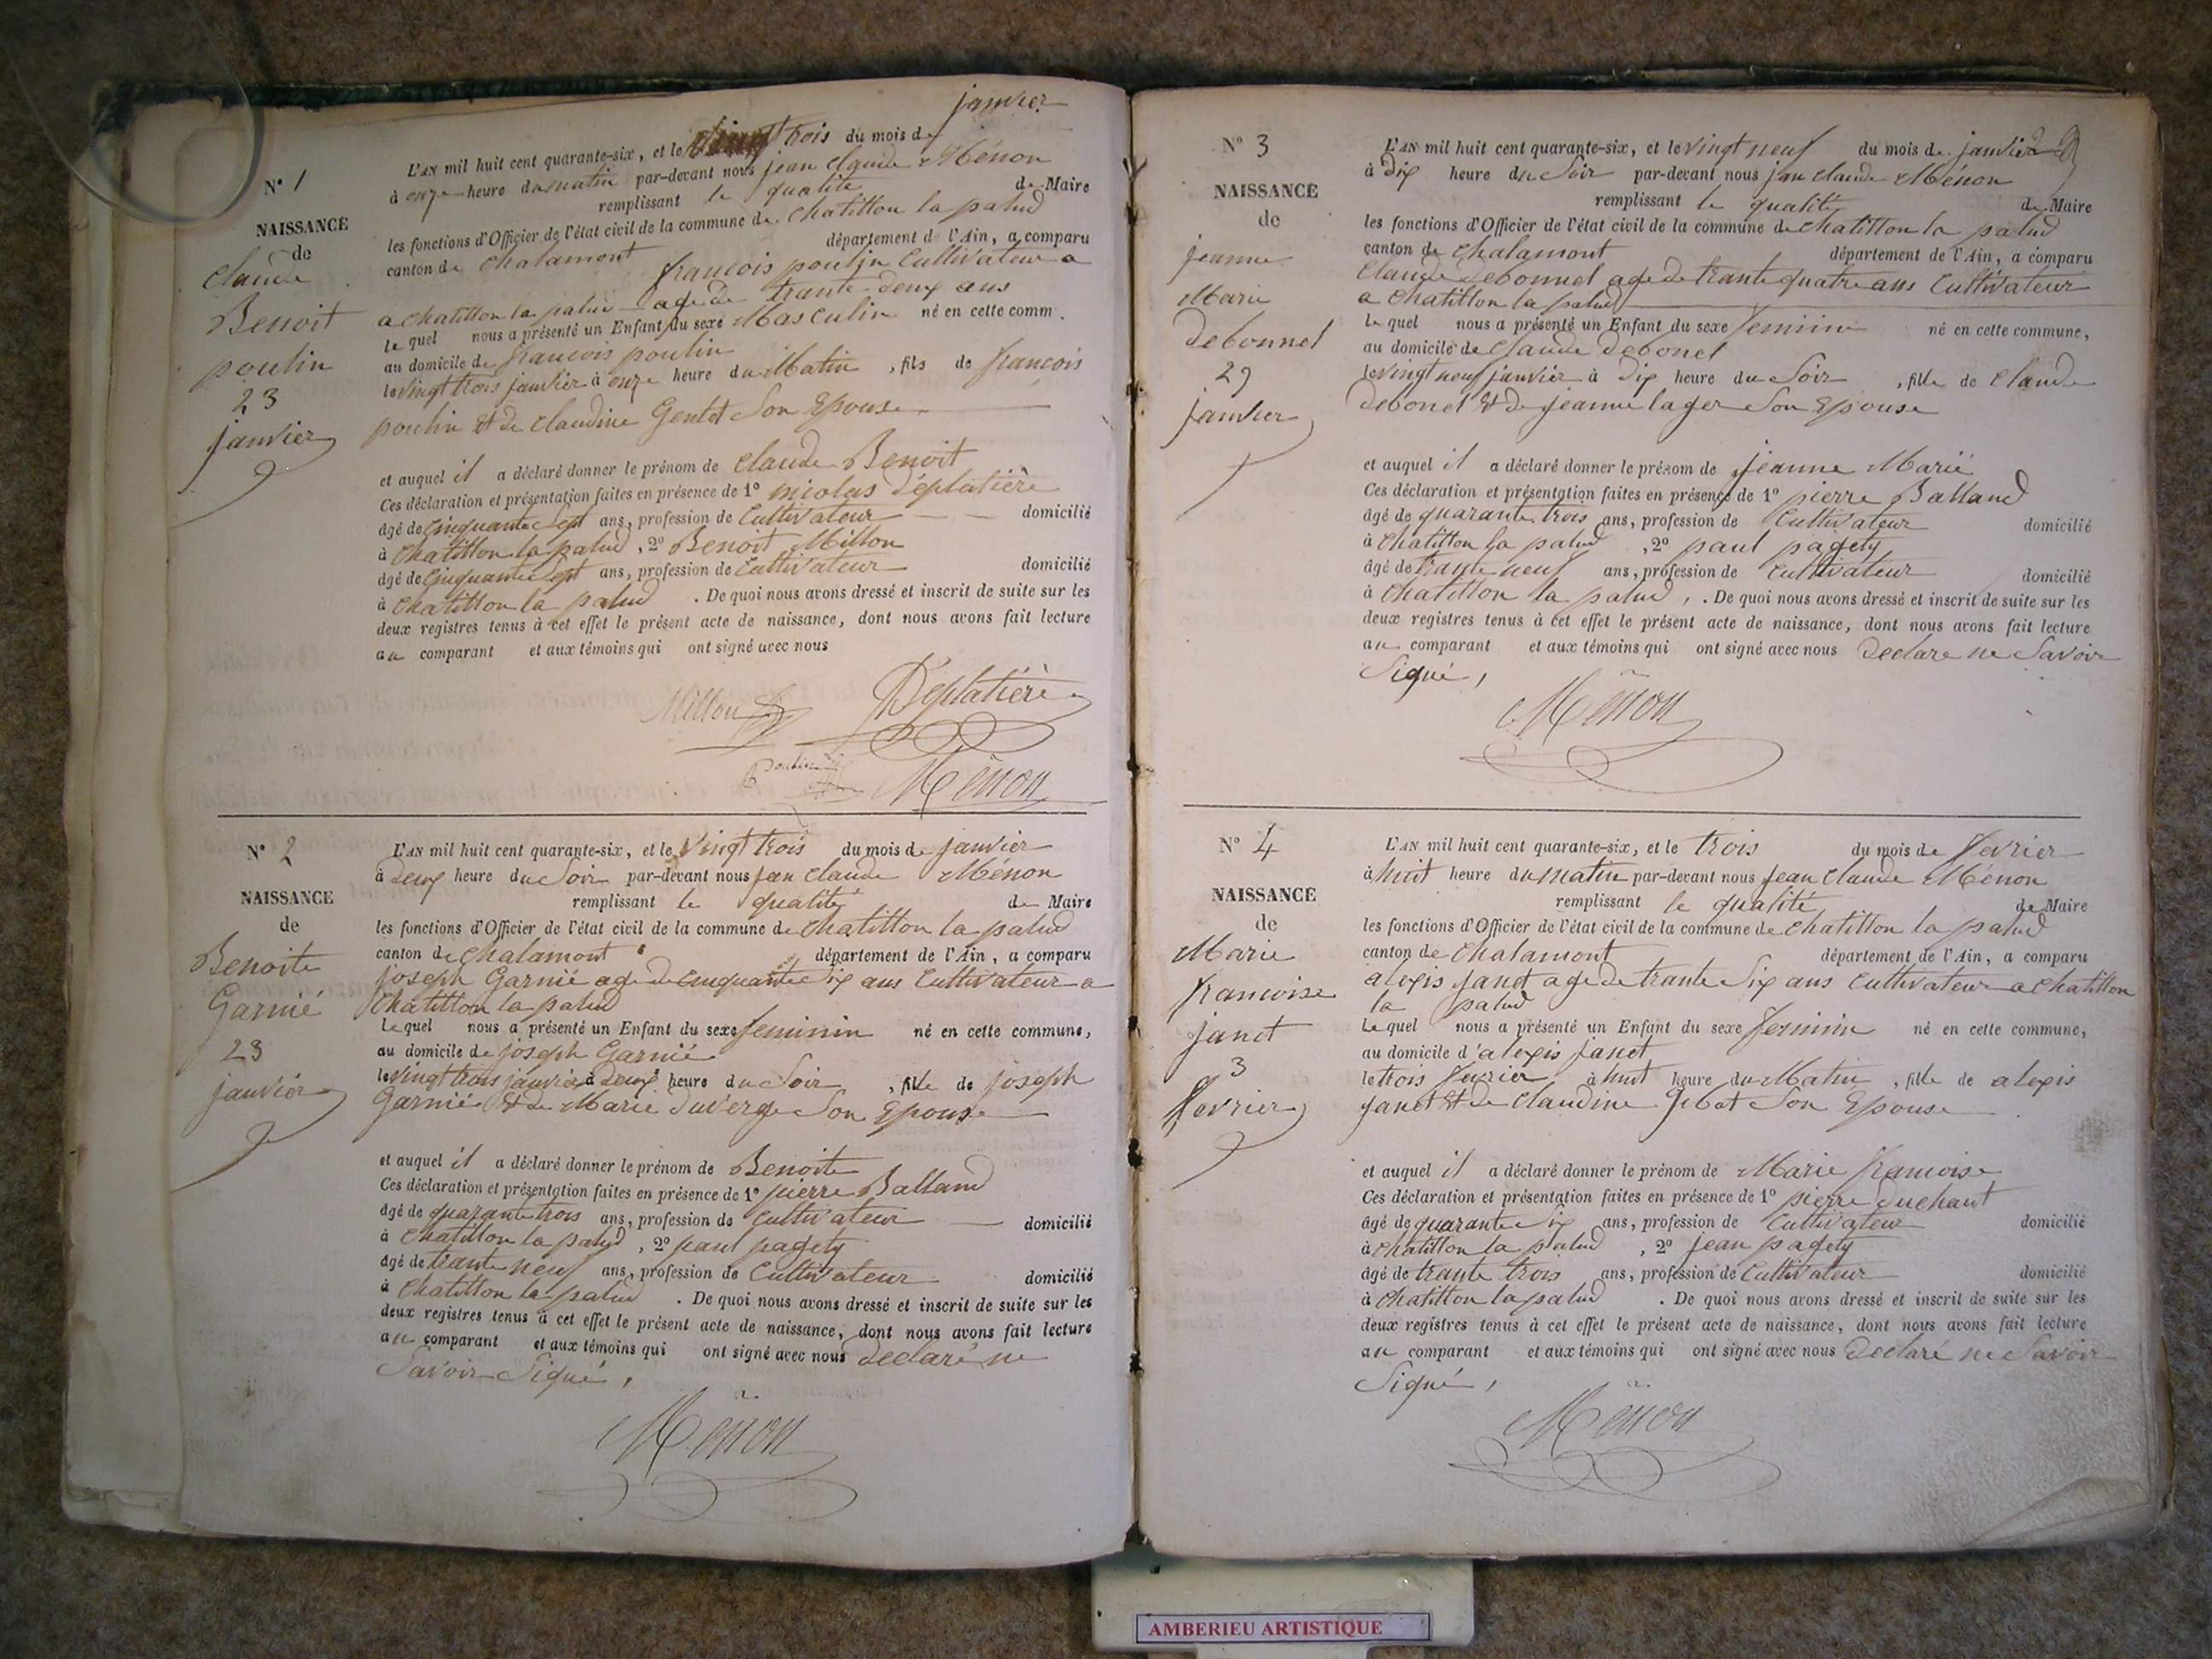 janvier
L'AN mil huit cent quarante-six, et le vingt trois du mois de
à onze heure du matin par-devant nous jean claude Ménon
remplissant le qualité de Maire
les fonctions d'Officier de l'état civil de la commune de chatillon la palud
canton de chalamont département de l'Ain, a comparu
francois poulin cultivateur a
a chatillon la palud agé de trante deux ans
le quel nous a présenté un Enfant du sexe Masculin né en cette comm.
au domicile de francois poulin
le vingt trois janvier à onze heure du Matin, fils de francois
poulin et de claudine Gentet Son Epouse
et auquel il a déclaré donner le prénom de claude Benoit
Ces déclaration et présentation faites en présence de 1° nicolas Déplatière
âgé de cinquante sept ans, profession de cultivateur domicilié
à chatillon la palud, 2° Benoit Millon
âgé de cinquante sept ans, profession de cultivateur domicilié
à chatillon la palud. De quoi nous avons dressé et inscrit de suite sur les
deux registres tenus à cet effet le présent acte de naissance, dont nous avons fait lecture
au comparant et aux témoins qui ont signé avec nous
Millon Déplatière
poulin Ménon
N° 1
NAISSANCE
de
claude
Benoit
poulin
23
janvier
N° 2
NAISSANCE
de
Benoite
Garnié
23
janvier
L'AN mil huit cent quarante-six, et le vingt trois du mois de janvier
à deux heure du Soir par-devant nous jean claude Ménon
remplissant le qualité de Maire
les fonctions d'Officier de l'état civil de la commune de chatillon la palud
canton de chalamont département de l'Ain, a comparu
joseph Garnié age de cinquante Six ans cultivateur a
chatillon la palud
le quel nous a présenté un Enfant du sexe feminin né en cette commune,
au domicile de joseph Garnié
le vingt trois janvier à deux heure du Soir, fille de joseph
Garnié et de Marie Duverge Son Epouse
et auquel il a déclaré donner le prénom de Benoite
Ces déclaration et présentation faites en présence de 1° pierre Balland
âgé de quarante trois ans, profession de cultivateur domicilié
à chatillon la palud, 2° paul pagety
âgé de trante neuf ans, profession de cultivateur domicilié
à chatillon la palud. De quoi nous avons dressé et inscrit de suite sur les
deux registres tenus à cet effet le présent acte de naissance, dont nous avons fait lecture
au comparant et aux témoins qui ont signé avec nous declaré ne
Savoir Signé,
Ménon
N° 3
NAISSANCE
de
jeanne
Marie
Debonnel
29
janvier
L'AN mil huit cent quarante-six, et le vingt neuf du mois de janvier
à dix heure du Soir par-devant nous jean claude Ménon
remplissant le qualité de Maire
les fonctions d'Officier de l'état civil de la commune de chatillon la palud
canton de chalamont département de l'Ain, a comparu
claude Debonnel age de trante quatre ans cultivateur
a chatillon la palud
le quel nous a présenté un Enfant du sexe feminin né en cette commune,
au domicile de claude Debonel
le vingt neuf janvier à dix heure du Soir, fille de claude
Debonel et de jeanne lager Son Epouse
et auquel il a déclaré donner le prénom de jeanne Marie
Ces déclaration et présentation faites en présence de 1° pierre Balland
âgé de quarante trois ans, profession de cultivateur domicilié
à chatillon la palud, 2° paul pagety
âgé de trante neuf ans, profession de cultivateur domicilié
à chatillon la palud,. De quoi nous avons dressé et inscrit de suite sur les
deux registres tenus à cet effet le présent acte de naissance, dont nous avons fait lecture
au comparant et aux témoins qui ont signé avec nous declare ne Savoir
Signé,
Ménon
N° 4
NAISSANCE
de
Marie
francoise
janet
3
fevrier
L'AN mil huit cent quarante-six, et le trois du mois de fevrier
à huit heure du matin par-devant nous jean claude Ménon
remplissant le qualité de Maire
les fonctions d'Officier de l'état civil de la commune de chatillon la palud
canton de chalamont département de l'Ain, a comparu
alexis janet age de trante Six ans cultivateur a chatillon
la palud
le quel nous a présenté un Enfant du sexe feminin né en cette commune,
au domicile d'alexis janet
le trois fevrier à huit heure du Matin, fille de alexis
janet et de claudine Son Epouse
et auquel il a déclaré donner le prénom de Marie francoise
Ces déclaration et présentation faites en présence de 1° pierre Duchant
âgé de quarante Six ans, profession de cultivateur domicilié
à chatillon la palud, 2° jean pagety
âgé de trante trois ans, profession de cultivateur domicilié
à chatillon la palud. De quoi nous avons dressé et inscrit de suite sur les
deux registres tenus à cet effet le présent acte de naissance, dont nous avons fait lecture
au comparant et aux témoins qui ont signé avec nous declaré ne Savoir
Signé,
Ménon
AMBERIEU ARTISTIQUE